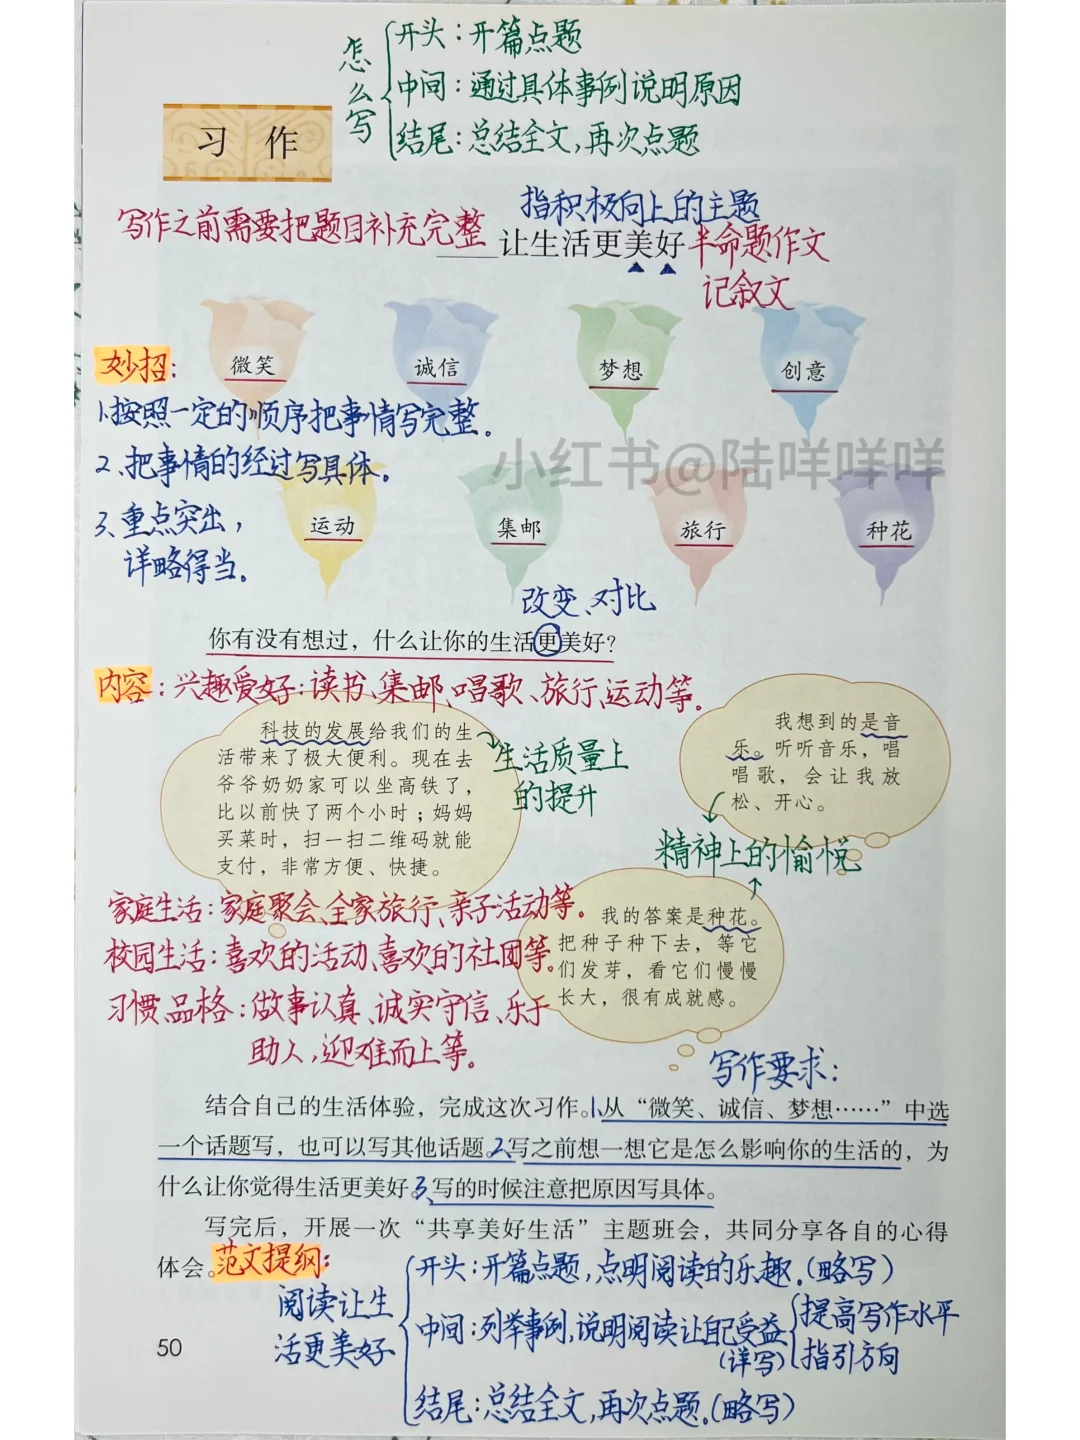 怎么写
开头：开篇点题
中间：通过具体事例说明原因
结尾：总结全文，再次点题
习 作
指积极向上的主题
写作之前需要把题目补充完整
____让生活更美好 半命题作文
记叙文
微笑 诚信 梦想 创意
妙招：
1.按照一定的顺序把事情写完整。
2、把事情的经过写具体。
小红书@陆咩咩咩
3、重点突出，
详略得当。
运动 集邮 旅行 种花
改变、对比
你有没有想过，什么让你的生活更美好？
内容：兴趣爱好：读书、集邮、唱歌、旅行、运动等。
科技的发展给我们的生
活带来了极大便利。现在去
爷爷奶奶家可以坐高铁了，
比以前快了两个小时；妈妈
买菜时，扫一扫二维码就能
支付，非常方便、快捷。
生活质量上
的提升
我想到的是音
乐。听听音乐，唱
唱歌，会让我放
松、开心。
精神上的愉悦
家庭生活：家庭聚会、全家旅行、亲子活动等。
校园生活：喜欢的活动、喜欢的社团等。
习惯、品格：做事认真、诚实守信、乐于
助人，迎难而上等。
我的答案是种花。
把种子种下去，等它
们发芽，看它们慢慢
长大，很有成就感。
写作要求：
结合自己的生活体验，完成这次习作。1、从“微笑、诚信、梦想……”中选
一个话题写，也可以写其他话题。2、写之前想一想它是怎么影响你的生活的，为
什么让你觉得生活更美好。3、写的时候注意把原因写具体。
写完后，开展一次“共享美好生活”主题班会，共同分享各自的心得
体会。
范文提纲：
阅读让生
活更美好
开头：开篇点题，点明阅读的乐趣。(略写)
中间：列举事例，说明阅读让自己受益
(详写)
提高写作水平
指引方向
结尾：总结全文，再次点题。(略写)
50